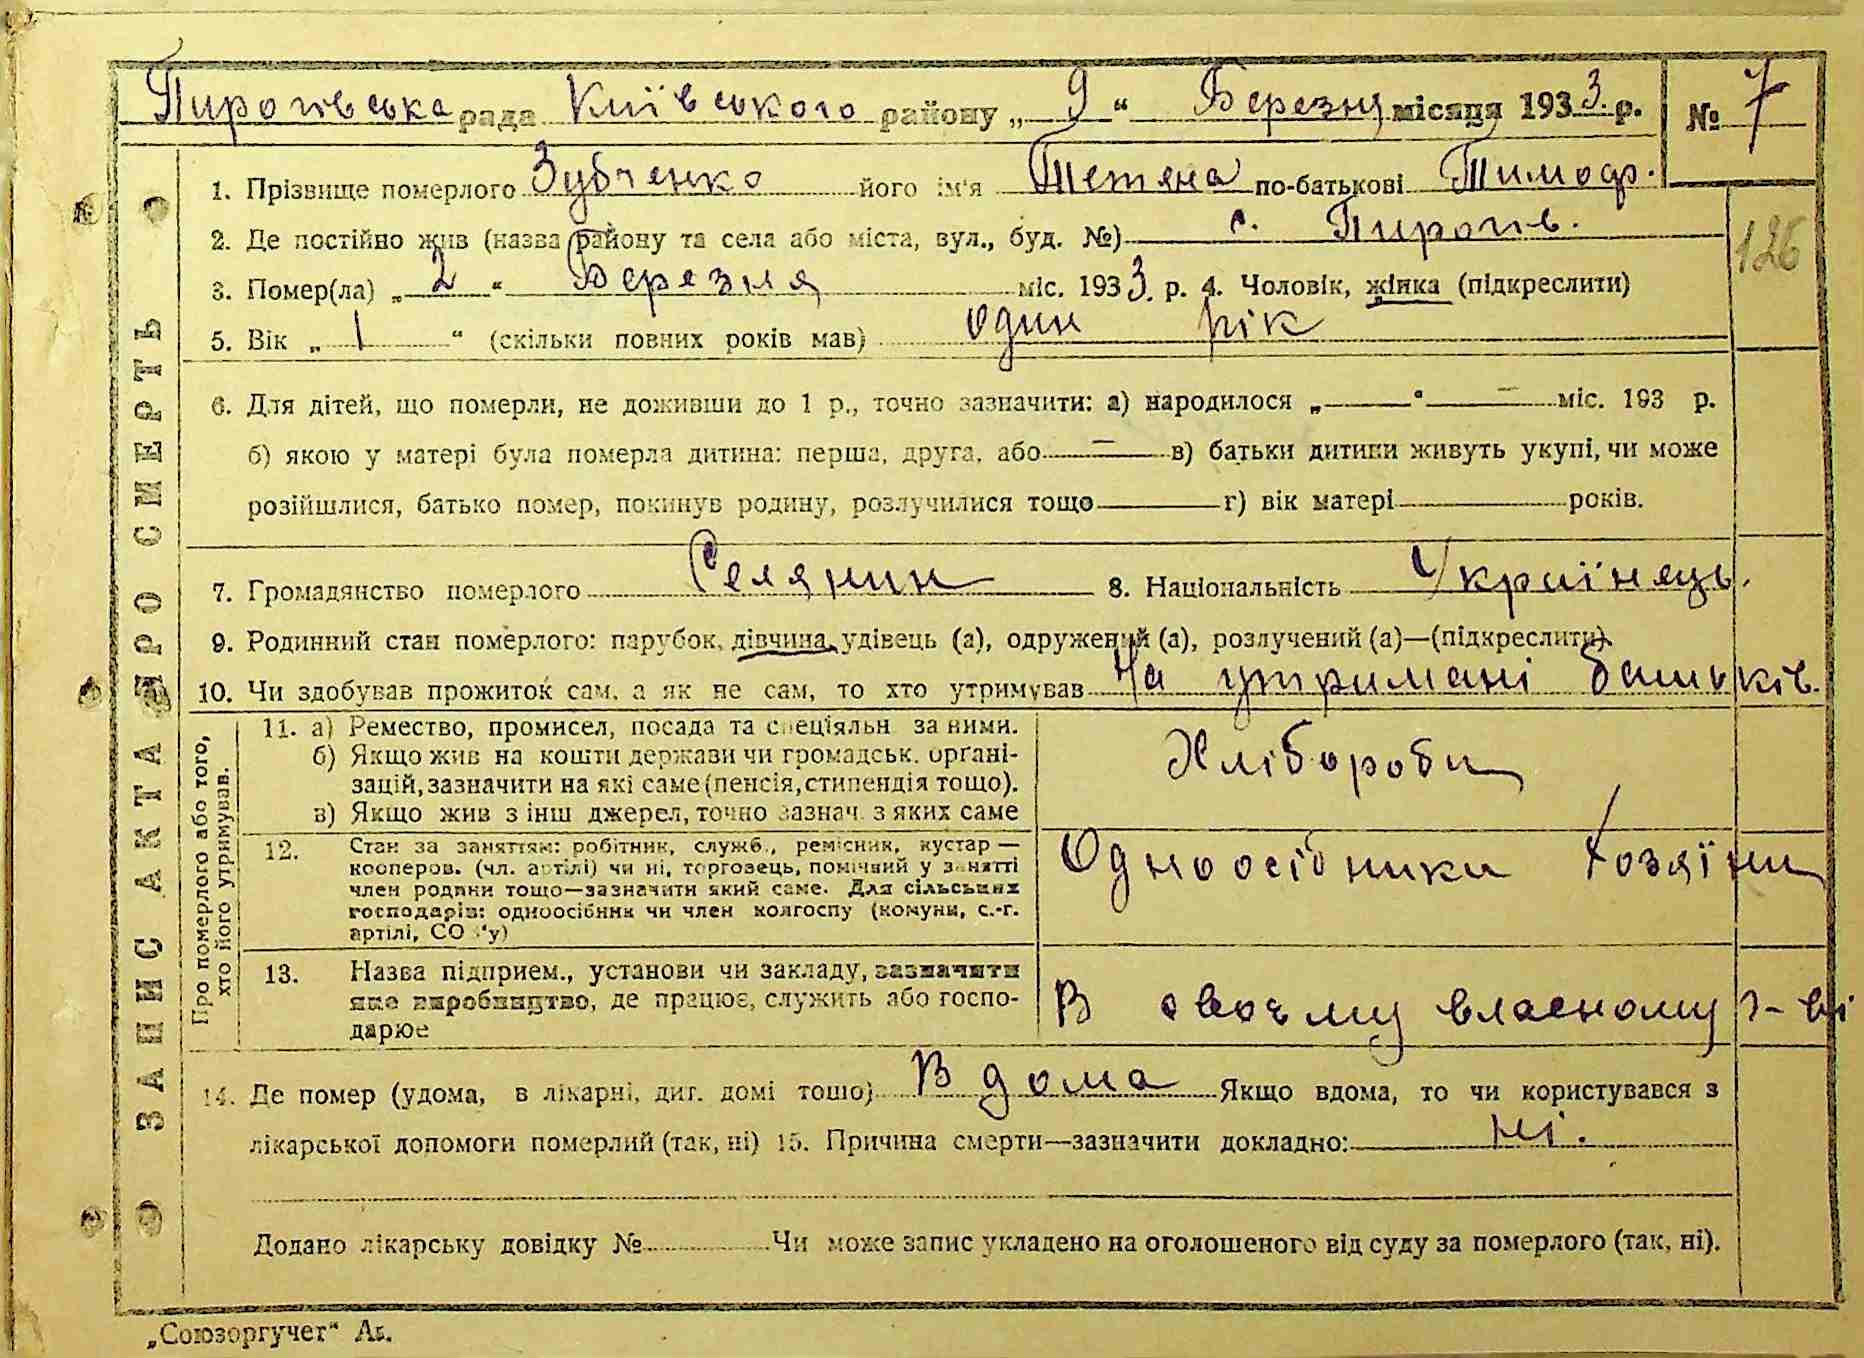 Пирогівська рада Київського району „ 9 “ Березня місяця 1933 р. № 7
1. Прізвище померлого Зубченко його ім'я Тетяна по-батькові Тимоф.
126
2. Де постійно жив (назва району та села або міста, вул., буд. №) с. Пирогів.
3. Помер(ла) „ 2 “ Березня міс. 1933. р. 4. Чоловік, жінка (підкреслити)
5. Вік „ 1 “ (скільки повних років мав) один рік
6. Для дітей, що померли, не доживши до 1 р., точно зазначити: а) народилося „ — “ — міс. 193 р.
б) якою у матері була померла дитина: перша, друга, або — в) батьки дитини живуть укупі, чи може
розійшлися, батько помер, покинув родину, розлучилися тощо г) вік матері років.
7. Громадянство померлого Селянин 8. Національність Украінець.
9. Родинний стан померлого: парубок, дівчина, удівець (а), одружений (а), розлучений (а)—(підкреслити).
10. Чи здобував прожиток сам, а як не сам, то хто утримував На утримані батьків.
ЗАПИС АКТА ПРО СМЕРТЬ
Про померлого або того, хто його утримував.
11. а) Ремество, промисел, посада та спеціяльн за ними.
б) Якщо жив на кошти держави чи громадськ. органі-
зацій, зазначити на які саме (пенсія, стипендія тощо).
в) Якщо жив з інш джерел, точно зазнач. з яких саме
Хлібороби
12. Стан за заняттям: робітник, служб., ремісник, кустар —
кооперов. (чл. артілі) чи ні, торговець, помічний у занятті
член родини тощо—зазначити який саме. Для сільських
господарів: одноосібник чи член колгоспу (комуни, с.-г.
артілі, СО у)
Одноосібники хозяїни
13. Назва підприєм., установи чи закладу, зазначити
яке виробництво, де працює, служить або госпо-
дарює
В своєму власному г-ві
14. Де помер (удома, в лікарні, дит. домі тощо) В дома Якщо вдома, то чи користувався з
лікарської допомоги померлий (так, ні) 15. Причина смерти—зазначити докладно: ні.
Додано лікарську довідку № Чи може запис укладено на оголошеного від суду за померлого (так, ні).
„Союзоргучет“